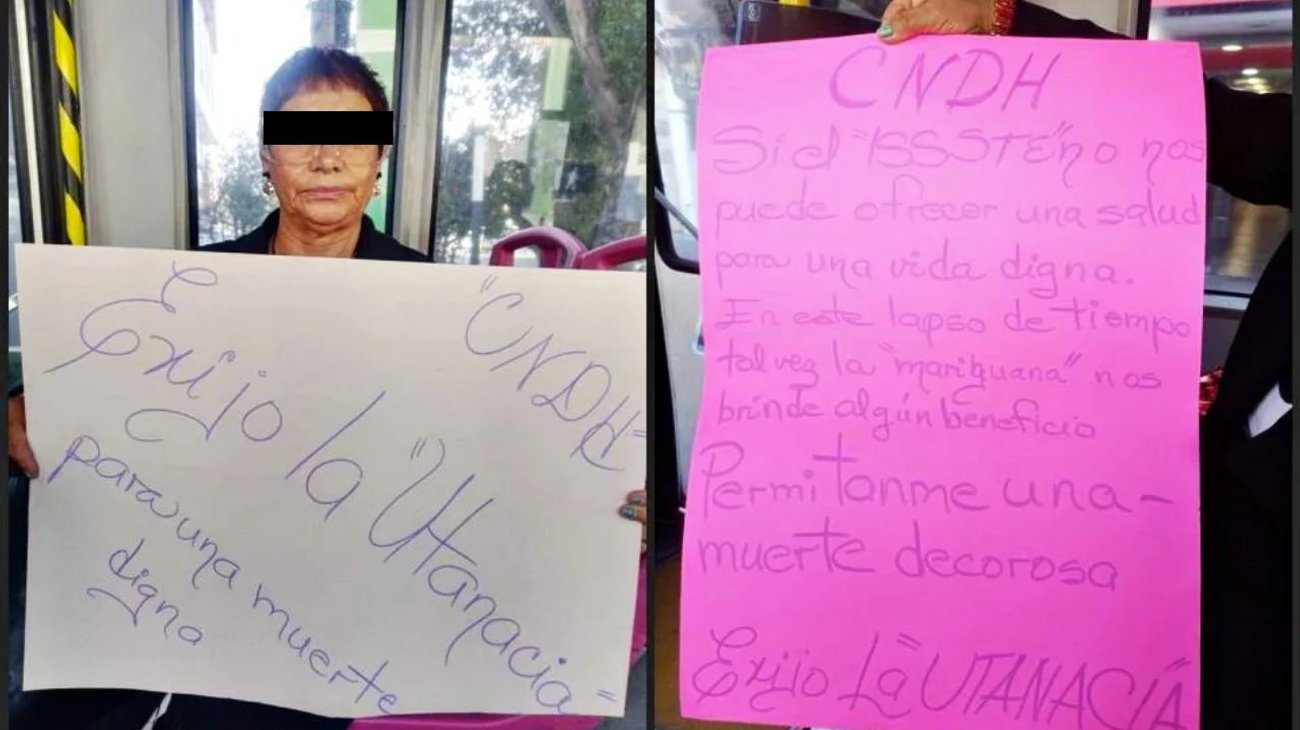 "CNDH"
Exijo la "Utanacia"
para una muerte
digna
CNDH
Si el "ISSSTE" no nos
puede ofrecer una salud
para una vida digna.
En este lapso de tiempo
tal vez la "mariguana" nos
brinde algún beneficio
Permitanme una-
muerte decorosa
Exijio La "UTANACIA"